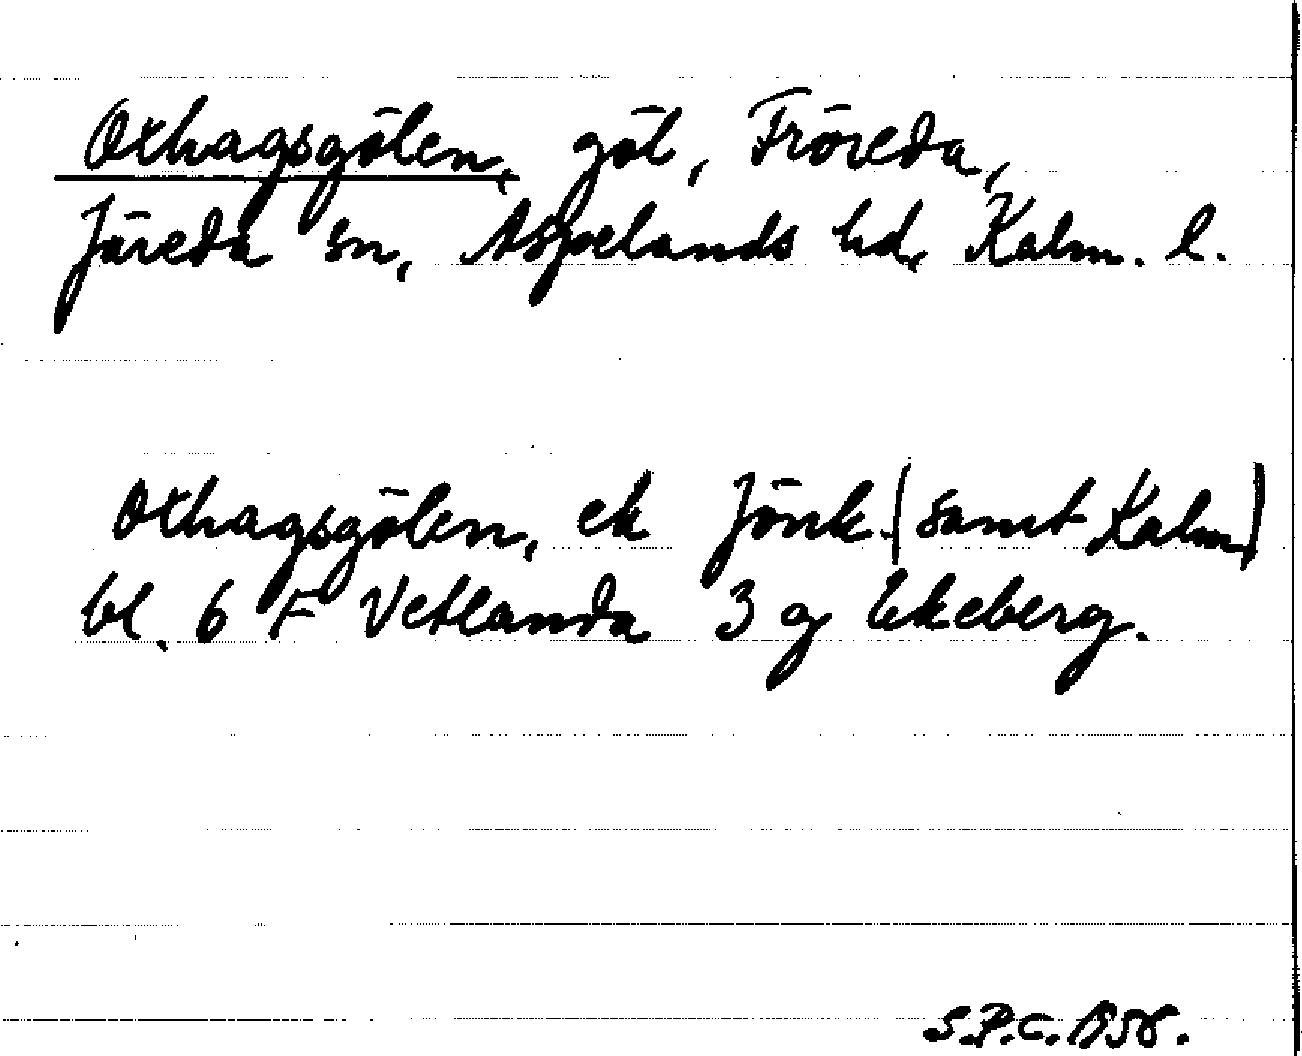 Oxhagsgölen, göl, Fröreda,
Järeda sn, Aspelands hd, Kalm. l.
Oxhagsgölen, ek Jönk. (samt Kalm)
bl. 6 F Vetlanda 3 g Ekeberg.
S.P.C. 1956.